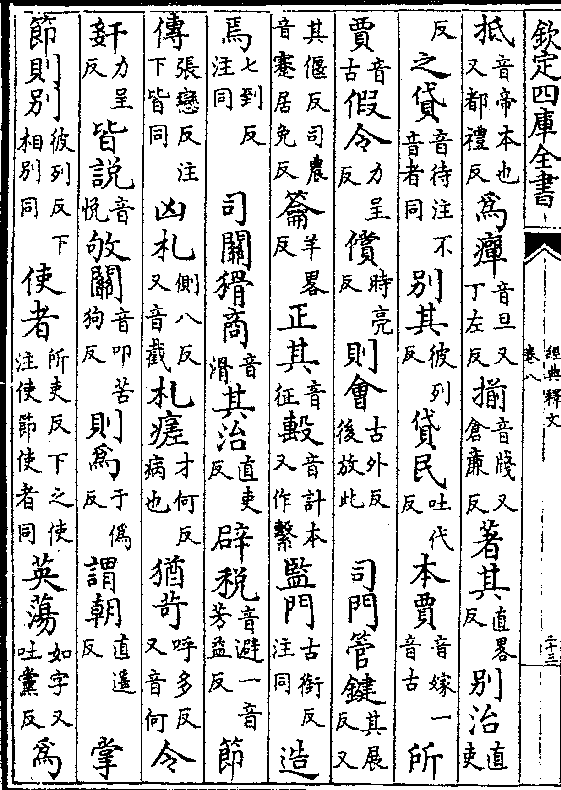 欽定四庫全書 經典釋文 卷八 二十三
抵音帝本也又都禮反為癉音旦又丁左反揃音牋又倉廉反著其直畧反別治直吏
反之貸音待注不音者同別其彼列反貸民吐代反本賈音嫁一音古所
賈音古假令力呈反償時亮反則會古外反後放此 司門管鍵其展反又
其偃反司農音蹇居免反籥羊畧反正其音征轚音計本又作繫監門古銜反注同造
焉七到反注同 司關猾商音滑其治直吏反辟稅音避一音芳益反節
傳張戀反注下皆同凶札側八反又音截札瘥才何反病也猶苛呼多反又音何令
姧力呈反皆說音悅敂關音叩苦狗反則為于偽反謂朝直遙反 掌
節則別彼列反下相別同使者所吏反下之使注使節使者同英蕩如字又吐黨反為